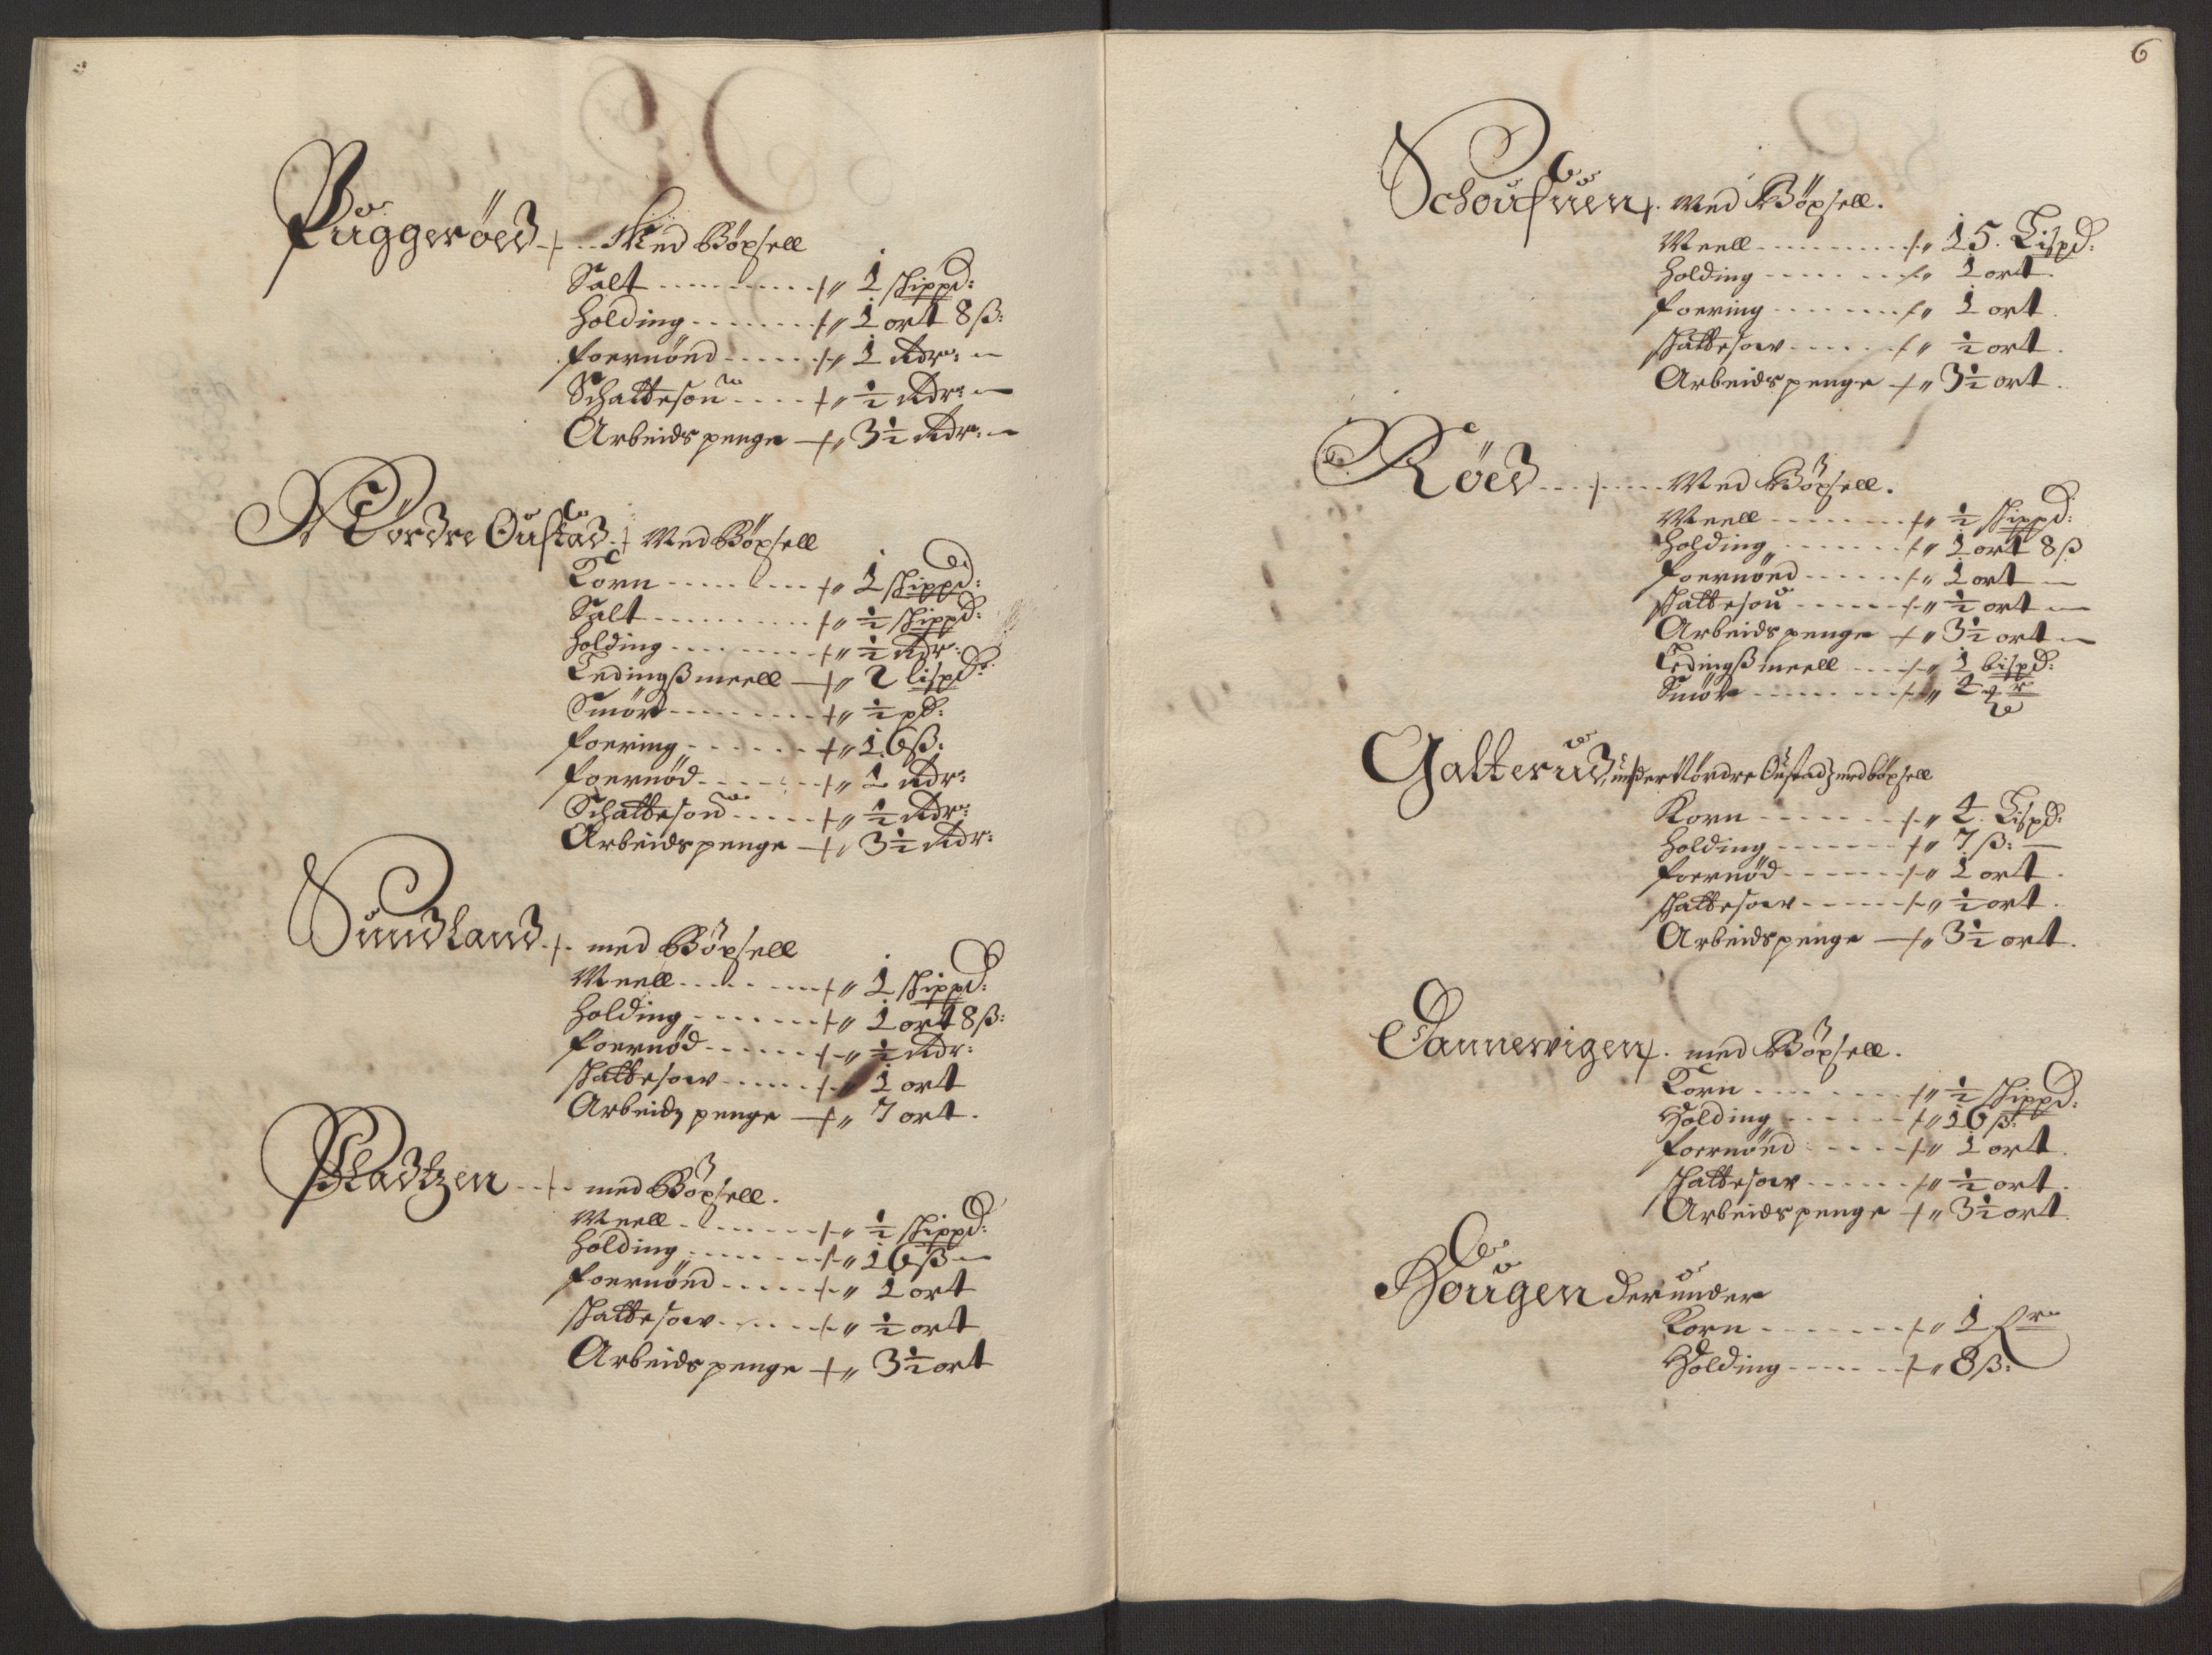 Puggerøed Med Böxsell
Salt 1 skippd:
Holding 1 ort 8 ß:
foernöed 1 Rdr:
Schattesou ½ Rdr:
Arbeidspenge 3½ Rdr:
Nordre Oustad Med Böxsell
Korn 1 skippd:
Salt ½ skippd:
Holding ½ Rdr:
Ledingß meell 2 lispd:
Smör ½ pd:
foering 16 ß:
foernöd 1 Rdr:
Schattesou ½ Rdr:
Arbeidspenge 3½ Rdr:
Sundland med Böxsell
Meell 1 skippd:
Holding 1 ort 8 ß:
foernöd ½ Rdr:
skattesoer 1 ort
Arbeidz penge 7 ort.
Pladtzen med Böxsell.
Meell ½ skippd:
Holding 16 ß
foernöed 1 ort
skattesoer ½ ort
Arbeids penge 3½ ort
6
Schoufuen. Med Böxsell.
Meell 15. Lispd:
Holding 1 ort.
foering 1 ort.
skattesoer ½ ort.
Arbeidspenge 3½ ort.
Röed Med Böxsell.
Meell ½ skippd:
Holding 1 ort 8 ß
foernöed 1 ort
skattesou ½ ort
Arbeidspenge 3½ ort
Ledingß meell 1 bispd:
Smör
Galterud, under Nördre Oustad med böxsell
Korn 4. Lispd:
Holding 7 ß:
foernöd 1 ort.
skattesoer ½ ort.
Arbeidspenge 3½ ort.
Dannevigen. med Böxsell.
Korn ½ skippd:
Holding 16 ß:
foernöed 1 ort.
skattesoer ½ ort.
Arbeidspenge 3½ ort.
Hougen derunder
Korn 1
Holding 8 ß: